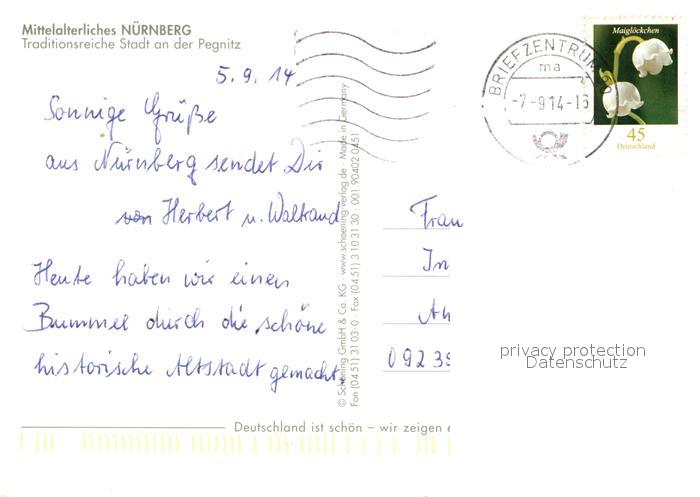 Mittelalterliches NÜRNBERG
Traditionsreiche Stadt an der Pegnitz
5.9.14
Sonnige Grüße
aus Nürnberg sendet Dir
von Herbert u. Waltraud
Heute haben wir einen
Bummel durch die schöne
historische Altstadt gemacht.
© Schöning GmbH & Co. KG · www.schoening-verlag.de · Made in Germany
Fon (04 51) 31 03-0 · Fax (04 51) 3 10 31 30 001 90402 0451
BRIEFZENTRUM
ma
-7.-9.14-16
Maiglöckchen
45
Deutschland
Frau
In
An
0923
privacy protection
Datenschutz
Deutschland ist schön – wir zeigen e